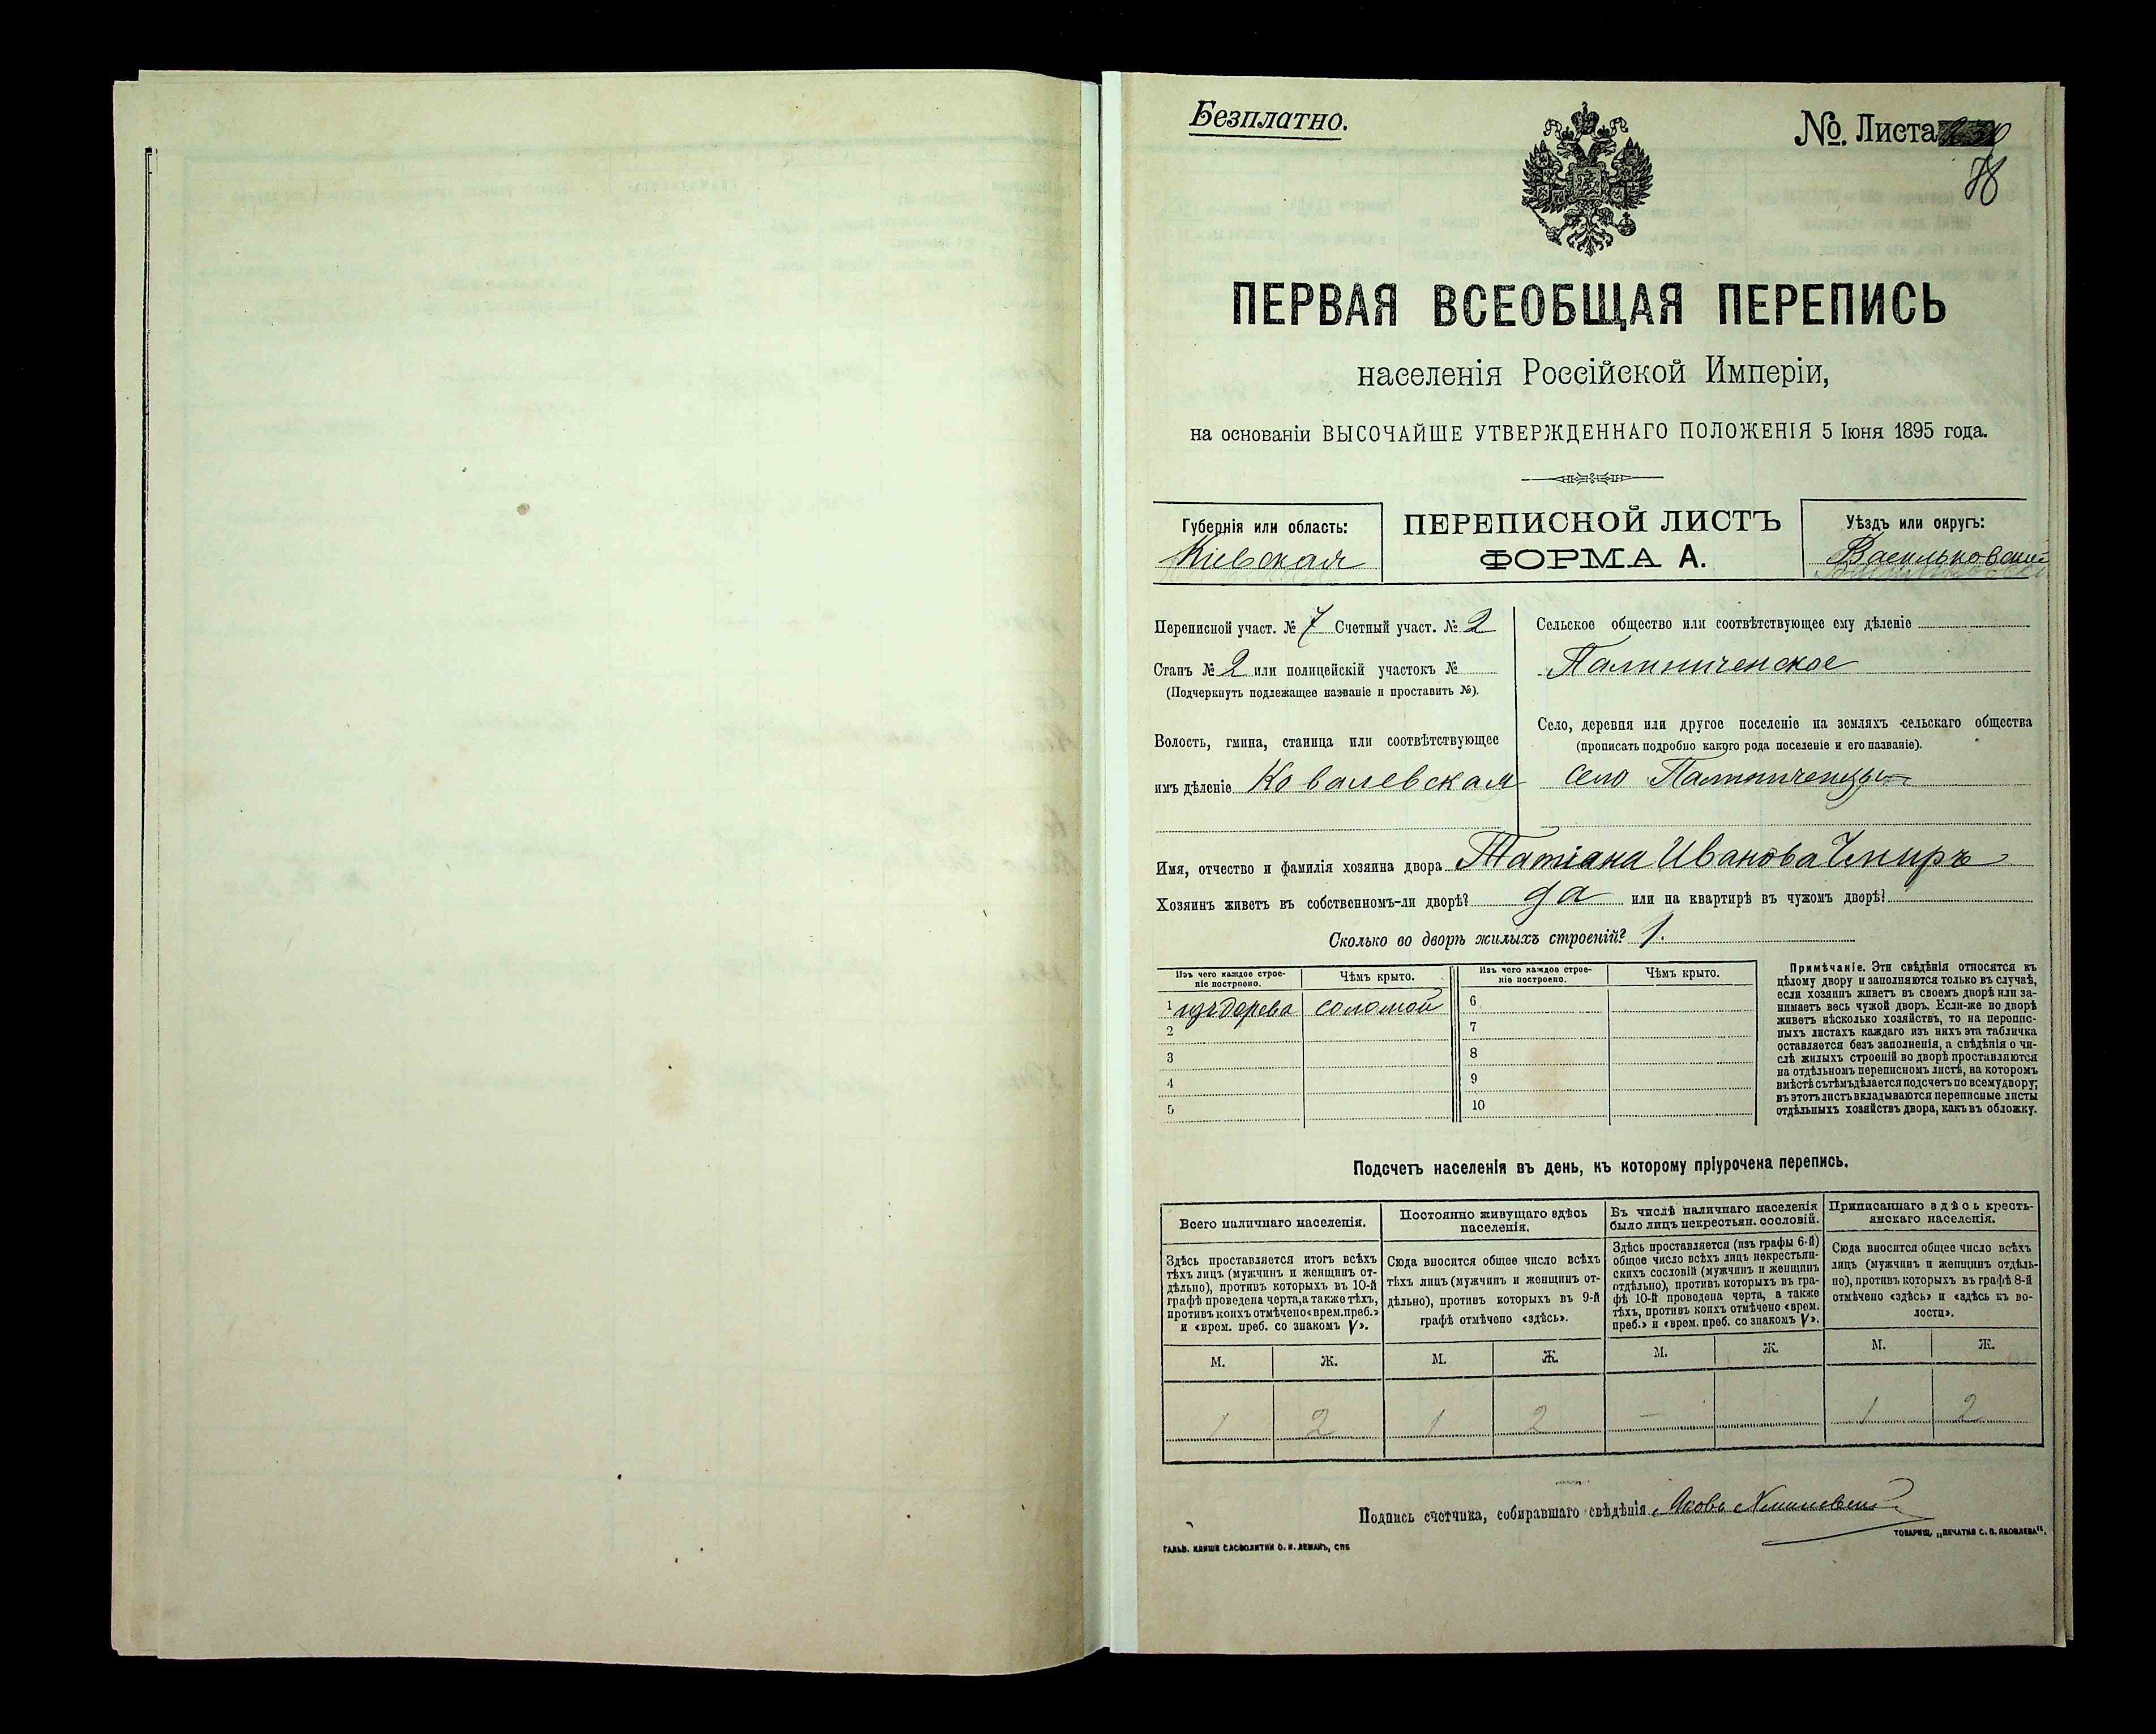 Безплатно.
№. Листа
78
ПЕРВАЯ ВСЕОБЩАЯ ПЕРЕПИСЬ
населенія Россійской Имперіи,
на основаніи ВЫСОЧАЙШЕ УТВЕРЖДЕННАГО ПОЛОЖЕНІЯ 5 Іюня 1895 года.
Губернія или область:
Кіевская
ПЕРЕПИСНОЙ ЛИСТЪ
ФОРМА А.
Уѣздъ или округъ:
Васильковский
Переписной участ. № 7 Счетный участ. № 2
Станъ № 2 или полицейскій участокъ №
(Подчеркнуть подлежащее названіе и проставить №).
Волость, гмина, станица или соотвѣтствующее
имъ дѣленіе Ковалевская
Сельское общество или соотвѣтствующее ему дѣленіе
Палиниченское
Село, деревня или другое поселеніе на земляхъ сельскаго общества
(прописать подробно какого рода поселеніе и его названіе).
село Палиниченцы
Имя, отчество и фамилія хозяина двора Татіана Иванова Чмиръ
Хозяинъ живетъ въ собственномъ-ли дворѣ? да или на квартирѣ въ чужомъ дворѣ?
Сколько во дворѣ жилыхъ строеній? 1.
Изъ чего каждое строе-
ніе построено.
Чѣмъ крыто.
Изъ чего каждое строе-
ніе построено.
Чѣмъ крыто.
1 изъ дерева соломой 6
2 7
3 8
4 9
5 10
Примѣчаніе. Эти свѣдѣнія относятся къ
цѣлому двору и заполняются только въ случаѣ,
если хозяинъ живетъ въ своемъ дворѣ или за-
нимаетъ весь чужой дворъ. Если-же во дворѣ
живетъ нѣсколько хозяйствъ, то на перепис-
ныхъ листахъ каждаго изъ нихъ эта табличка
оставляется безъ заполненія, а свѣдѣнія о чи-
слѣ жилыхъ строеній во дворѣ проставляются
на отдѣльномъ переписномъ листѣ, на которомъ
вмѣстѣ съ тѣмъ дѣлается подсчетъ по всему двору;
въ этотъ листъ вкладываются переписные листы
отдѣльныхъ хозяйствъ двора, какъ въ обложку.
Подсчетъ населенія въ день, къ которому пріурочена перепись.
Всего наличнаго населенія.
Здѣсь проставляется итогъ всѣхъ
тѣхъ лицъ (мужчинъ и женщинъ от-
дѣльно), противъ которыхъ въ 10-й
графѣ проведена черта, а также тѣхъ,
противъ коихъ отмѣчено «врем. преб.»
и «врем. преб. со знакомъ V».
М. Ж.
1 2
Постоянно живущаго здѣсь
населенія.
Сюда вносится общее число всѣхъ
тѣхъ лицъ (мужчинъ и женщинъ от-
дѣльно), противъ которыхъ въ 9-й
графѣ отмѣчено «здѣсь».
М. Ж.
1 2
Въ числѣ наличнаго населенія
было лицъ некрестьян. сословій.
Здѣсь проставляется (изъ графы 6-й)
общее число всѣхъ лицъ некрестьян-
скихъ сословій (мужчинъ и женщинъ
отдѣльно), противъ которыхъ въ гра-
фѣ 10-й проведена черта, а также
тѣхъ, противъ коихъ отмѣчено «врем.
преб.» и «врем. преб. со знакомъ V».
М. Ж.
–
Приписаннаго здѣсь кресть-
янскаго населенія.
Сюда вносится общее число всѣхъ
лицъ (мужчинъ и женщинъ отдѣль-
но), противъ которыхъ въ графѣ 8-й
отмѣчено «здѣсь» и «здѣсь къ во-
лости».
М. Ж.
1 2
Подпись счетчика, собиравшаго свѣдѣнія Яковъ
ГАЛЬВ. КЛИШЕ СЛОВОЛИТНИ О. И. ЛЕМАНЪ, СПБ
ТОВАРИЩ. „ПЕЧАТНЯ С. П. ЯКОВЛЕВА".